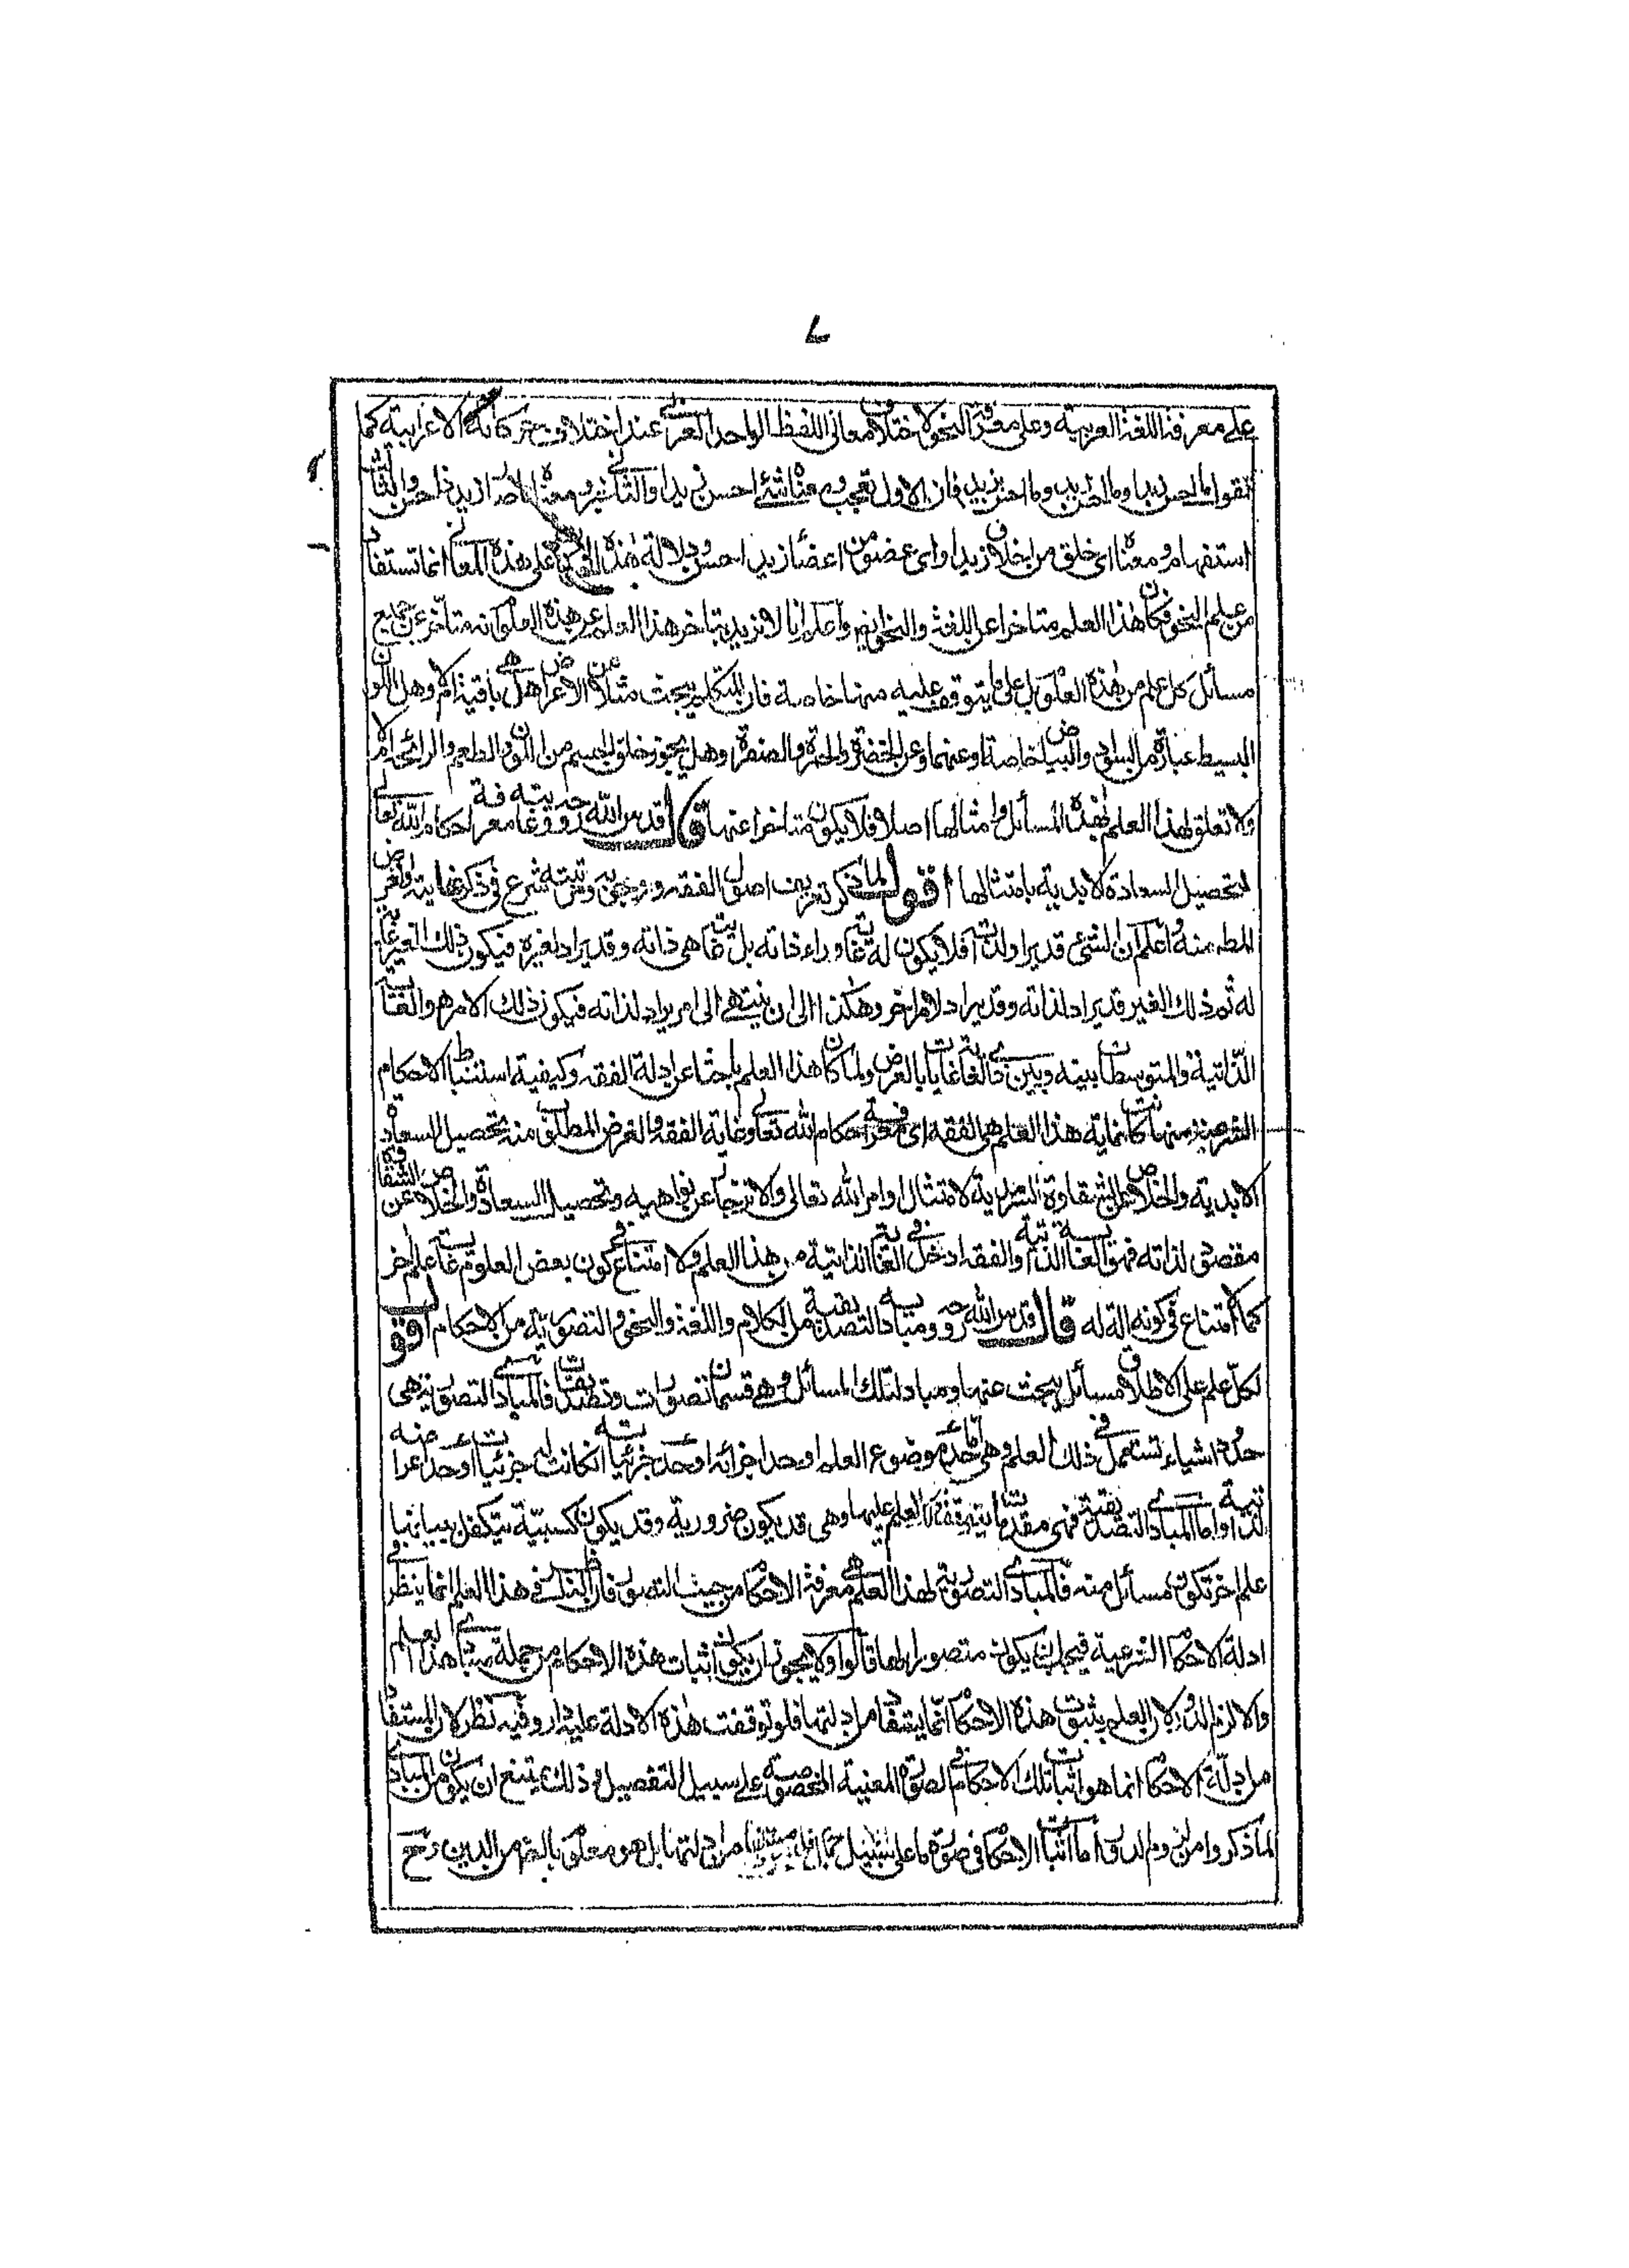 ٧
على معرفة اللغة العربية وعلى معرفة النحو لاختلاف معاني اللفظ الواحد العربي عند اختلاف حركاته الاعرابية كما
تقول ما احسن زيدا وما احسن زيد وما احسن زيد فان الاول تعجب ومعناه شئ احسن زيدا والثاني خبر ومعناه ما صار زيد ذا حسن والثالث
استفهام ومعناه اى خلق من اخلاق زيد او اى عضو من اعضاء زيد احسن ودلالة هذه التراكيب على هذه المعاني انما تستفاد
من علم النحو فكان هذا العلم متاخرا عن اللغة والنحو ايضا واعلم انا لا نريد بتاخر هذا العلم عن هذه العلوم انه متاخر عن جميع
مسائل كل علم من هذه العلوم بل على ما يتوقف عليه منها خاصة فان المتكلم يبحث مثلا عن الاعراض هل هي باقية ام لا وهل اللون
البسيط عبارة عن السواد والبياض خاصة او عنهما وعن الخضرة والحمرة والصفرة وهل يجوز خلو الجسم من اللون والطعم والرائحة ام لا
ولا تعلق لهذا العلم بهذه المسائل وامثالها اصلا فلا يكون متاخرا عنها قال قدس الله روحه وغايته معرفة احكام الله تعالى
لتحصيل السعادة الابدية بامتثالها اقول لما ذكر تعريف اصول الفقه ومرتبته شرع في ذكر غايته والغرض
المط منه واعلم ان الشئ قد يراد لذاته فلا يكون له غاية وراء ذاته بل غايته هى ذاته وقد يراد لغيره فيكون ذلك الغير غاية
له ثم ذلك الغير قد يراد لذاته وقد يراد لامر اخر وهكذا الى ان ينتهى الى امر يراد لذاته فيكون ذلك الامر هو الغاية
الذاتية والمتوسطات بينه وبين ذى الغاية غايات بالعرض ولما كان هذا العلم باحثا عن ادلة الفقه وكيفية استنباط الاحكام
الشرعية منها كانت غاية هذا العلم هى الفقه اى معرفة احكام الله تعالى وغاية الفقه والغرض المطلوب منه تحصيل السعادة
الابدية والخلاص عن الشقاوة السرمدية لامتثال اوامر الله تعالى والانزجار عن نواهيه وتحصيل السعادة والخلاص عن الشقاوة
مقصود لذاته فهو الغاية الذاتية والفقه ادخل في الغاية الذاتية من هذا العلم ولا امتناع في كون بعض العلوم غاية علم اخر
كما لا امتناع في كونه الة له قال قدس الله روحه ومباديه التصديقية من الكلام واللغة والنحو والتصورية من الاحكام اقول
لكل علم على الاطلاق مسائل يبحث عنها ومباد لتلك المسائل وهى قسمان تصورات وتصديقات فالمبادى التصورية هى
حدود اشياء تستعمل في ذلك العلم وهى اما حد موضوع العلم او حد اجزائه او حد جزئياته ان كانت له جزئيات او حد اعراضه
الذاتية واما المبادى التصديقية فهى مقدمات يتوقف ذلك العلم عليها وهى قد يكون ضرورية وقد يكون كسبية يتكفل ببيانها
علم اخر تكون مسائل منه فالمبادى التصورية لهذا العلم هي معرفة الاحكام من حيث التصور فان الناظر في هذا العلم انما ينظر في
ادلة الاحكام الشرعية فيجب ان يكون متصورا لها قالوا ولا يجوز ان يكون اثبات هذه الاحكام من جملة مبادى هذا العلم
والا لزم الدور لان العلم بثبوت هذه الاحكام انما يستفاد من ادلتها فلو توقفت هذه الادلة عليه دار وفيه نظر لان المستفاد
من ادلة الاحكام انما هو اثبات تلك الاحكام في الصور المعينة المخصوصة على سبيل التفصيل وذلك يمتنع ان يكون من المبادى
لما ذكروا من لزوم الدور اما اثبات الاحكام في صورة ما على سبيل من ادلتها بل هو معلوم بالضرورة من الدين وح